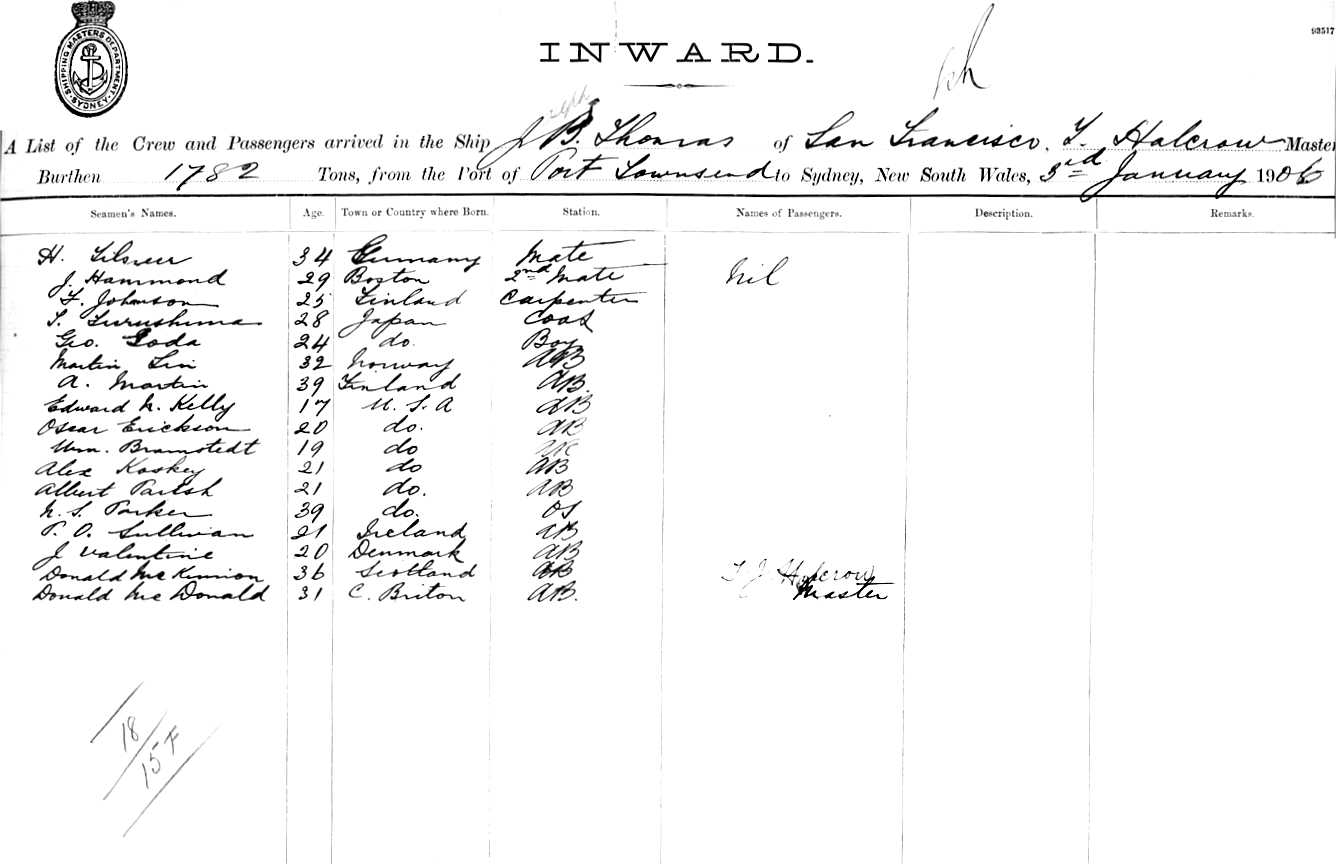 SHIPPING MASTERS DEPARTMENT SYDNEY
93517
INWARD.
A List of the Crew and Passengers arrived in the Ship J B. Thomas of San Francisco. T. Halcrow Master
Burthen 1782 Tons, from the Port of Port Townsend to Sydney, New South Wales, 3rd January 1906
Seamen's Names. Age. Town or Country where Born. Station. Names of Passengers. Description. Remarks.
H. 34 Germany Mate
J. Hammond 29 Boston 2nd Mate Nil
F. Johnson 25 Finland Carpenter
28 Japan Cook
Geo. 24 do. Boy
Martin 32 Norway AB
A. Martin 39 Finland AB.
Edward N. Kelly 17 U. S. A AB
Oscar Erickson 20 do. AB
Wm. Bramstedt 19 do
Alex Koskey 21 do AB
Albert Parish 21 do. AB
N. S. Parker 39 do. OS
P. O. Sullivan 21 Ireland AB
J Valentine 20 Denmark AB
Donald McKinnion 36 Scotland AB T J Halcrow
Donald McDonald 31 C. Briton AB. Master
18
15 F